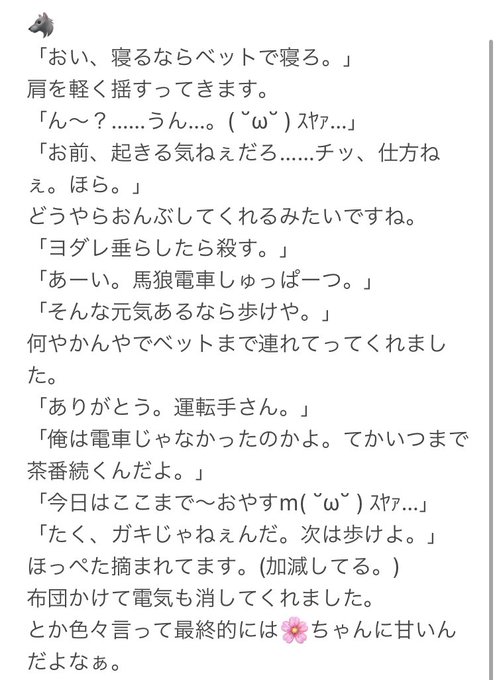 🐺
「おい、寝るならベットで寝ろ。」
肩を軽く揺すってきます。
「ん〜？……うん…。( ˘ω˘ ) ｽﾔｧ…」
「お前、起きる気ねぇだろ……チッ、仕方ね
ぇ。ほら。」
どうやらおんぶしてくれるみたいですね。
「ヨダレ垂らしたら殺す。」
「あーい。馬狼電車しゅっぱーつ。」
「そんな元気あるなら歩けや。」
何やかんやでベットまで連れてってくれまし
た。
「ありがとう。運転手さん。」
「俺は電車じゃなかったのかよ。てかいつまで
茶番続くんだよ。」
「今日はここまで〜おやすm( ˘ω˘ ) ｽﾔｧ…」
「たく、ガキじゃねぇんだ。次は歩けよ。」
ほっぺた摘まれてます。(加減してる。)
布団かけて電気も消してくれました。
とか色々言って最終的には🌸ちゃんに甘いん
だよなぁ。